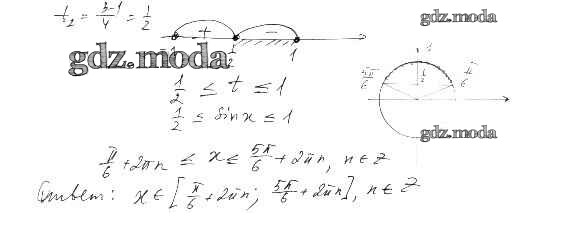 t₂ = (3-1)/4 = 1/2
+ −
1/2 1
gdz.moda
gdz.moda
1/2 ≤ t ≤ 1
1/2 ≤ sinx ≤ 1
5π/6 1/2 π/6
gdz.moda
π/6 + 2πn ≤ x ≤ 5π/6 + 2πn, n ∈ Z
Ответ: x ∈ [π/6 + 2πn; 5π/6 + 2πn], n ∈ Z